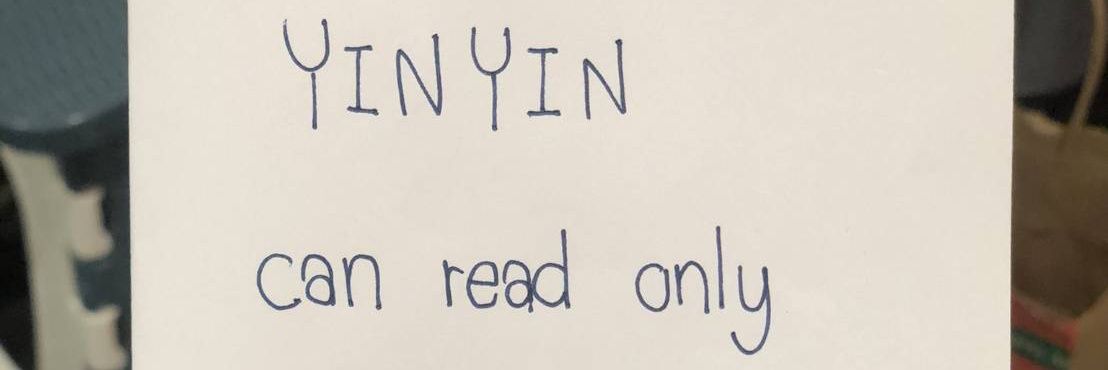 YINYIN
can read only